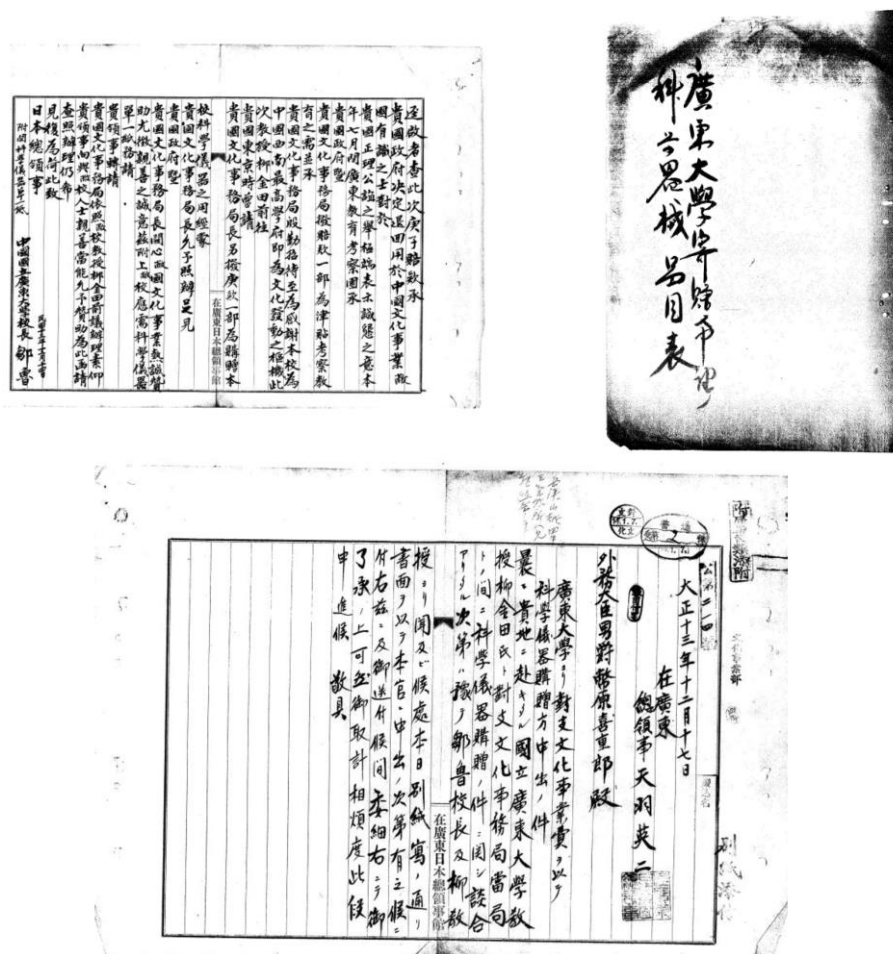 逕啟者查此次庚子賠款承
貴國政府決定退回用於中國文化事業敝
國有識之士對於
貴國正理公誼之舉極端表示誠懇之意本
年七月間廣東教育考察團承
貴國政府暨
貴國文化事務局撥賠款一部為津貼考察教
育之需並承
貴國文化事務局殷勤招待至為感謝本校為
中國西南最高學府即為文化發動之樞機此
次教授柳金田前往
貴國東京時曾請
貴國文化事務局長另撥庚款一部為購贈本
校科學儀器之用經蒙
貴國文化事務局長允予照辦足見
貴國政府暨
貴國文化事務局長關心敝國文化事業熱誠贊
助尤徵親善之誠意茲附上敝校應需科學儀器
單一紙務請
貴領事轉請
貴國文化事務局依照敝校教授柳金田前議辦理素仰
貴領事向與敝校人士親善當能允予贊助為此函請
查照辦理仍希
見復為荷此致
日本總領事
附開科學儀器單一紙
中國國立廣東大學校長 鄒魯
在廣東日本總領事館
廣東大學寄贈希望
科學器械品目表
公第二一四
大正十三年十二月十七日
在廣東
總領事天羽英二
外務大臣男爵幣原喜重郎殿
廣東大學ヨリ對支文化事業費ヲ以テ
科學儀器購贈方申出ノ件
曩ニ貴地ニ赴キタル國立廣東大學教
授柳金田氏ト對支文化事務局當局
トノ間ニ科學儀器購贈ノ件ニ関シ談合
アリタル次第ハ豫テ鄒魯校長及柳教
在廣東日本總領事館
授ヨリ聞及ビ候處本日別紙寫ノ通リ
書面ヲ以テ本官ニ申出ノ次第有之候ニ
付右茲ニ及御送付候間委細右ニテ御
了承ノ上可然御取計相煩度此段
申進候 敬具
別紙添付